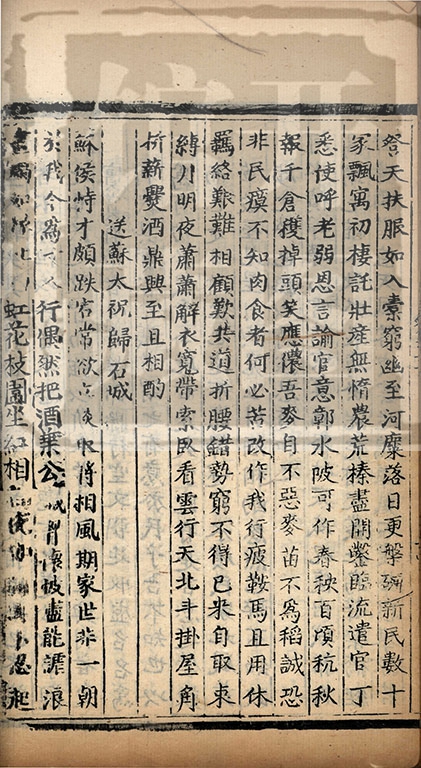 發天扶服如入橐窮幽至河麋落日更槃跚新民數十
冢飄寓初棲託壯産無惰農荒榛盡開鑿臨流遣官丁
悉使呼老弱恩言諭官意郭水陂可作春秧百頃秔秋
報千倉穫掉頭笑應儂吾麥自不惡麥苗不為稻誠恐
非民瘼不知肉食者何必苦改作我行疲鞍馬且用休
羈絡艱難相顧歎共道折腰錯勢窮不得已來自取束
縛月明夜蕭蕭解衣寬帶索臥看雲行天北斗掛屋角
折薪爨酒鼎興至且相酌
送蘇太祝歸石城
蘇侯恃才頗跌宕常欲立談取將相風期家世非一朝
於我今為行偶然把酒棄公城胷懷披盡能譚浪
虹花枝圍坐紅相忍起